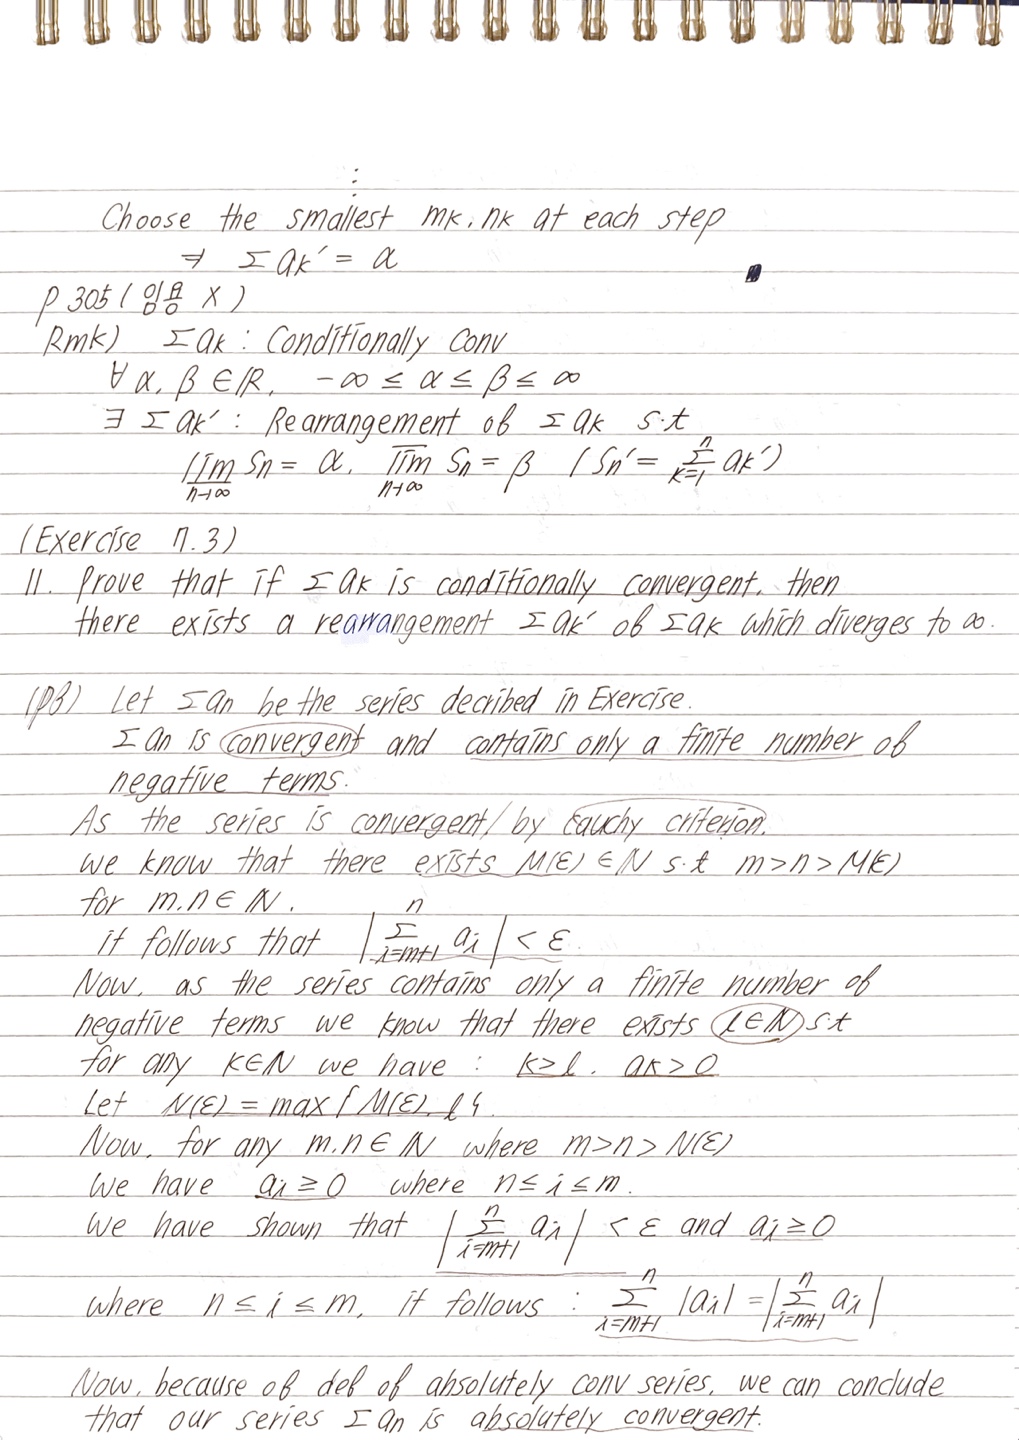 ⋮
Choose the smallest mk, nk at each step
⇒ Σ ak′ = α
P 305 ( 임용 X )
Rmk) Σ ak : Conditionally Conv
∀ α, β ∈ ℝ, -∞ ≤ α ≤ β ≤ ∞
∃ Σ ak′ : Rearrangement of Σ ak s.t
lim Sn = α, lim Sn = β ( Sn′ = Σ ak′ )
n→∞ n→∞ k=1 n
(Exercise 7.3)
11. Prove that if Σ ak is conditionally convergent, then
there exists a rearrangement Σ ak′ of Σ ak which diverges to ∞.
(pf) Let Σ an be the series decribed in Exercise.
Σ an is convergent and contains only a finite number of
negative terms.
As the series is convergent/ by Cauchy criterion,
we know that there exists M(ε) ∈ N s.t m>n>M(ε)
for m,n ∈ N.
it follows that | Σ_{i=m+1}^{n} ai | < ε.
Now, as the series contains only a finite number of
negative terms we know that there exists l∈N s.t
for any k∈N we have : k≥l, ak>0
Let N(ε) = max { M(ε), l }.
Now, for any m,n ∈ N where m>n>N(ε)
we have ai ≥ 0 where n ≤ i ≤ m.
we have shown that | Σ_{i=m+1}^{n} ai | < ε and ai ≥ 0
where n ≤ i ≤ m, it follows : Σ_{i=m+1}^{n} |ai| = | Σ_{i=m+1}^{n} ai |
Now, because of def of absolutely conv series, we can conclude
that our series Σ an is absolutely convergent.